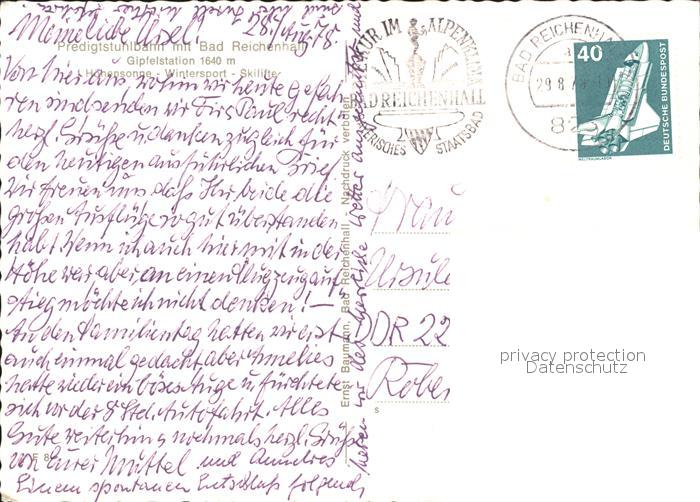 Meine liebe Usel! 28. Aug. 78.
Predigtstuhlbahn mit Bad Reichenhall
Gipfelstation 1640 m
Höhensonne - Wintersport - Skilifte
Von hier aus, wohin wir heute gefah-
ren sind senden wir Dir u. Paul recht
herzl. Grüße u. danken zugleich für
den heutigen ausführlichen Brief.
Wir freuen uns daß Ihr beide die
großen Ausflüge so gut überstanden
habt. Wenn ich auch hier mit in der
Höhe war aber, an einen Flugzeugauf-
stieg möchte ich nicht denken! —
An den Familientag hatten wir erst
auch einmal gedacht, aber Amelies
hatte wieder ein böses Auge u. fürchtete
sich vor der 8 Std. Autofahrt. Alles
Gute weiterhin u. nochmals herzl. Grüße
von Eurer Muttel und Annelies
Einem spontanen Entschluß folgend,
haben wir das herrliche Wetter ausgenutzt und
Ernst Baumann, Bad Reichenhall - Nachdruck verboten
KUR IM ALPENKLIMA
BAD REICHENHALL
BAYERISCHES STAATSBAD
BAD REICHENHALL
29.8.78
82
40
DEUTSCHE BUNDESPOST
WELTRAUMLABOR
Frau
Ursula
DDR 22
Rober
privacy protection
Datenschutz